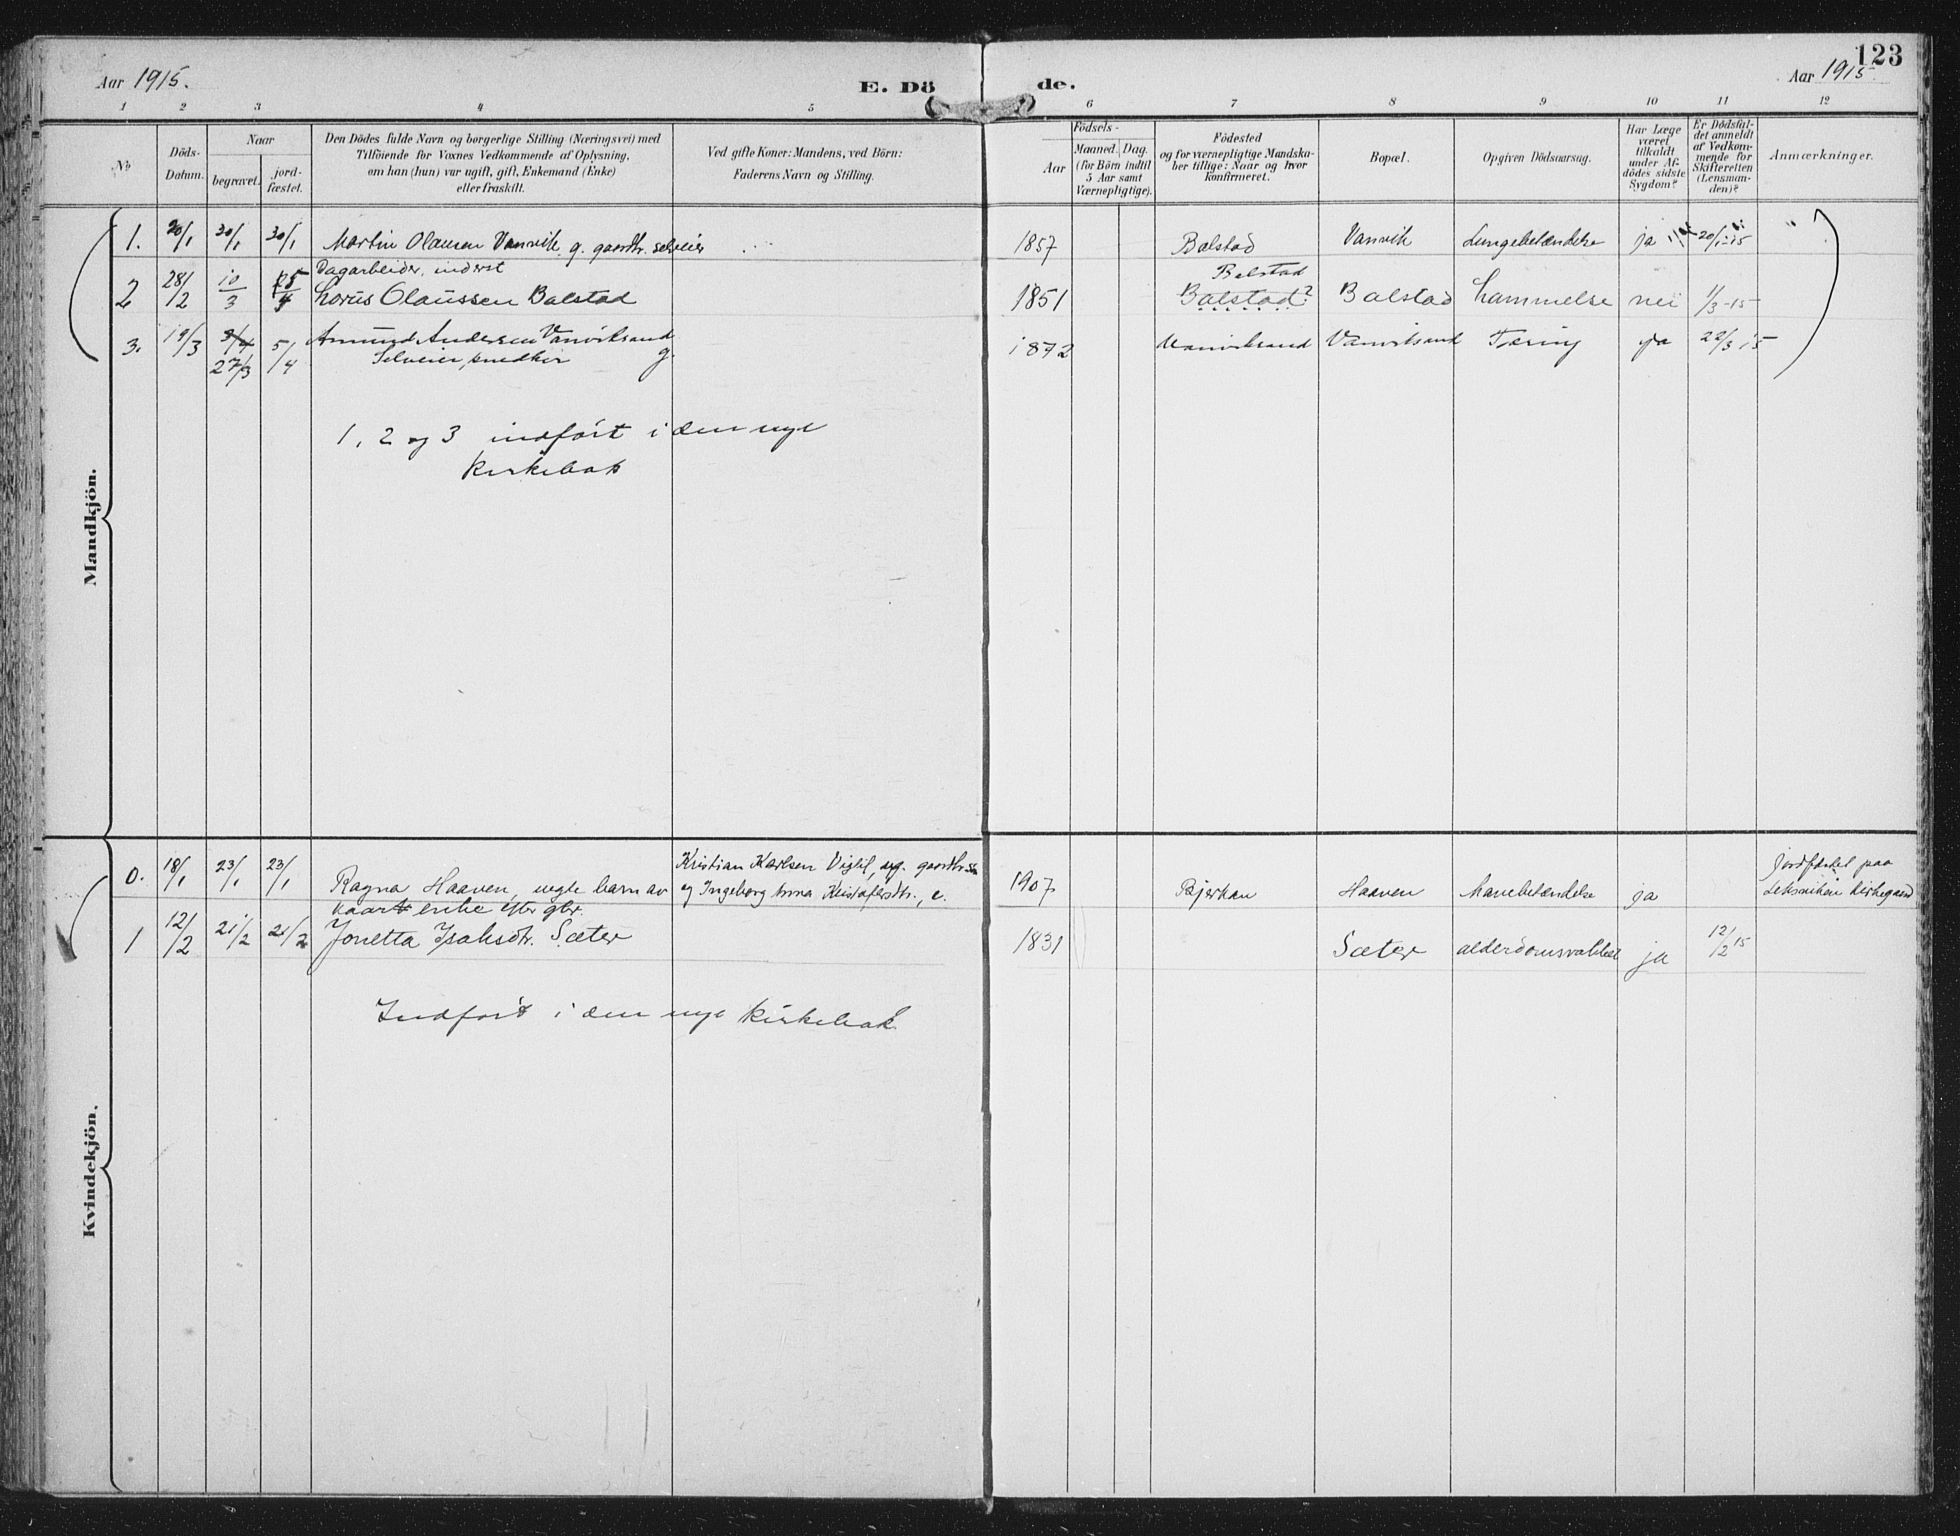 Aar 1915.
E. Dö
de.
123
Aar 1915.
1 2 3 4 5 6 7 8 9 10 11 12
No
Döds-
Datum.
Naar
begravet.
jord-
fæstet.
Den Dödes fulde Navn og borgerlige Stilling (Næringsvei) med
Tilföiende for Voxnes Vedkommende af Oplysning,
om han (hun) var ugift, gift, Enkemand (Enke)
eller fraskilt.
Ved gifte Koner: Mandens, ved Börn:
Faderens Navn og Stilling.
Födsels-
Aar
Maaned. Dag.
(for Börn indtil
5 Aar samt
Værnepligtige).
Födested
og for værnepligtige Mandska-
ber tillige: Naar og hvor
konfirmeret.
Bopæl.
Opgiven Dödsaarsag.
Har Læge
været
tilkaldt
under Af-
dödes sidste
Sygdom?
Er Dödsfal-
det anmeldt
af Vedkom-
mende for
Skifteretten
(Lensman-
den)?
Anmærkninger.
Mandkjön.
1. 20/1 30/1 30/1 Martin Olausen Vanvik g. gaardbr. selveier 1857 Balstad Vanvik Lungebetændelse ja 20/1-15
Dagarbeider, inderst
Balstad
2 28/2 10/3 5/4 Lorus Olaussen Balstad 1851 Balstad? Balstad Lammelse nei 1/3-15
3. 19/3 5/4 Amund Andersen Vanviksand 1872 Vanviksand Vanviksand Tæring ja 22/3 15
27/3 Selveier, snedker g.
1, 2 og 3 indført i den nye
kirkebok
Kvindekjön.
Kristian Karlsen Vigtil, gaardbr.
0. 18/1 23/1 23/1 Ragna Haaven, uegte barn av og Ingeborg Anna Kristofersdtr., 1907 Bjerkan Haaven ja
Jordfæstet paa
Leksviken kirkegaard
kaarenke efter gbr.
1 12/2 21/2 21/2 Jonetta Isaksdtr. Sæter 1831 Sæter alderdomssvakhet ja 12/2 15
Indført i den nye kirkebok